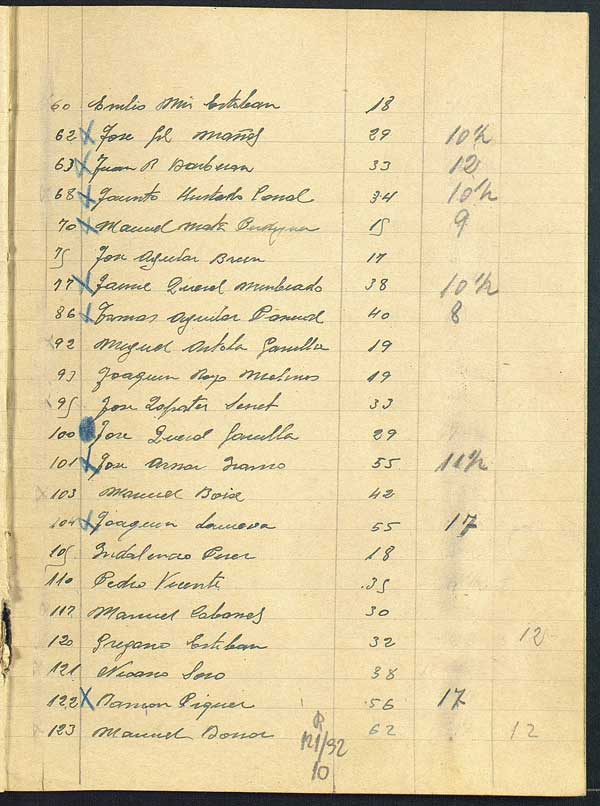 60 Emilio Mir Esteban 18
62 X Jose Gil Mañes 29 10½
63 X Juan R Barberan 33 12
68 X Jacinto Hurtado 34 10½
70 X Manuel Mata 15 9
75 Jose Aguilar 17
77 X Jaime Querol Membrado 38 10½
86 X Tomas Aguilar Pascual 40 8
92 Miguel Artola 19
93 Joaquin Royo Molinos 19
95 Jose Zapater Senet 33
100 Jose Querol 29
101 X Jose Arnar 55 11½
103 Manuel Boix 42
104 X Joaquin 55 17
105 Indalencio Perez 18
110 Pedro Vicente 35
117 Manuel Cabanes 30
120 Esteban 32 12
121 38
122 X Ramon Piquer 56 17
123 Manuel 62 12
121/32
10